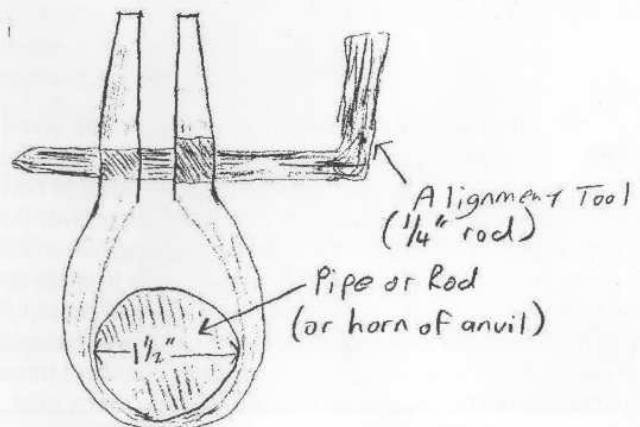 Alignment Tool
(1/4" rod)
Pipe or Rod
(or horn of anvil)
1 1/2"